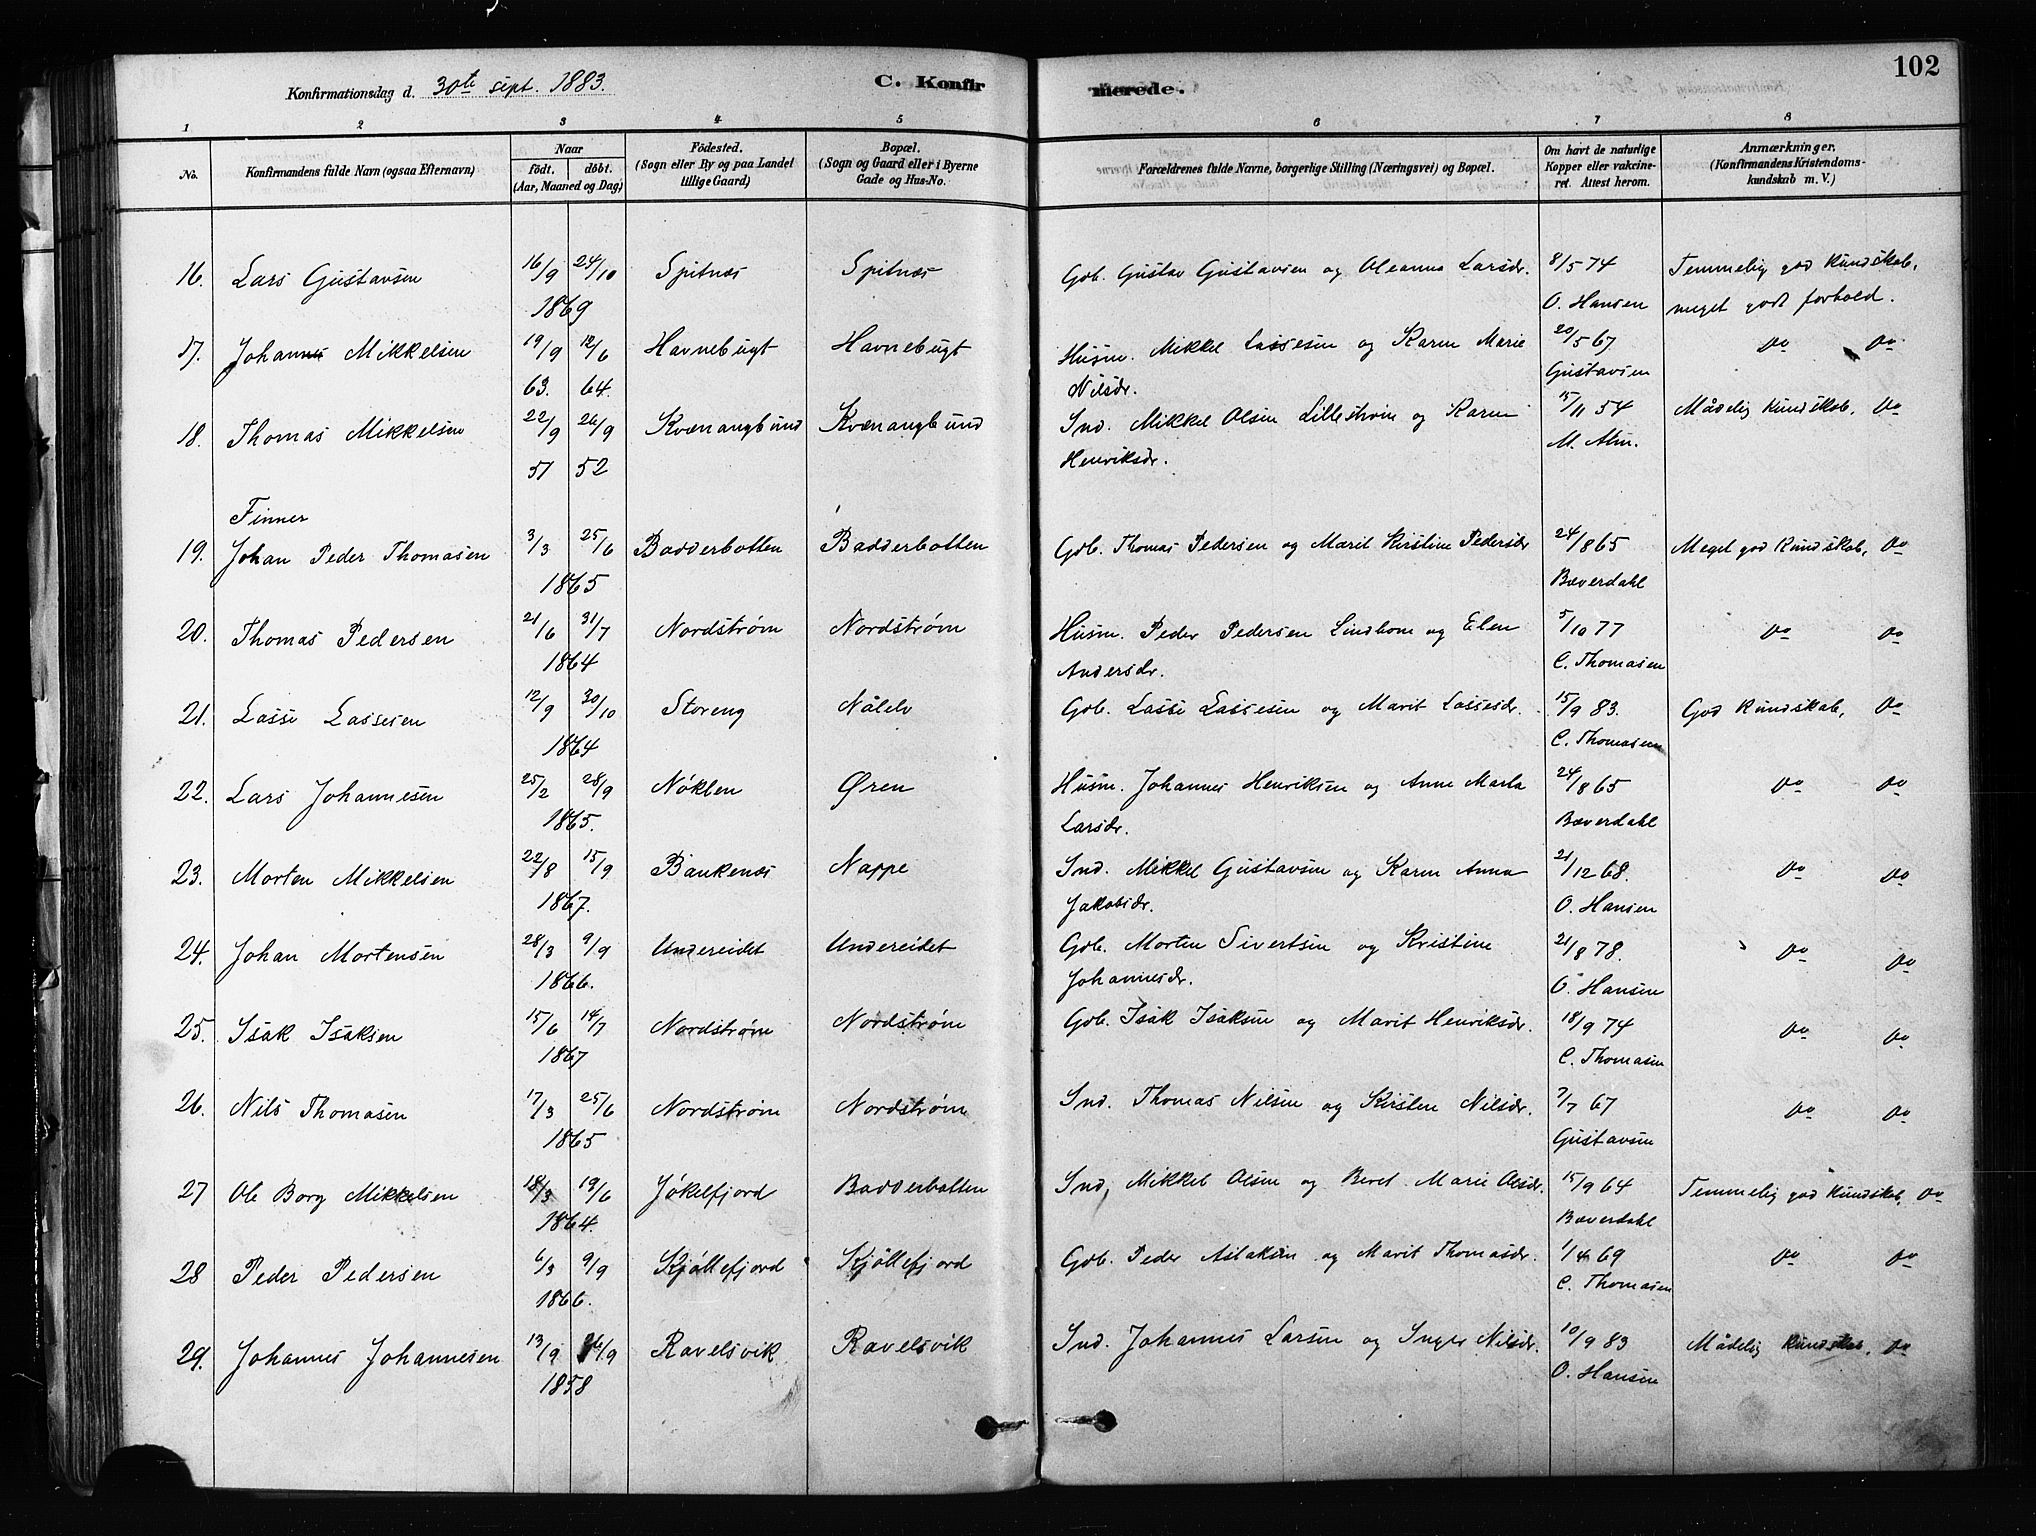 102
Konfirmationsdag d. 30te sept. 1883.
C. Konfirmerede.
1 2 3 4 5 6 7 8
No. Konfirmandens fulde Navn (ogsaa Efternavn) Naar födt. döbt. (Aar, Maaned og Dag) Födested. (Sogn eller By og paa Landet tillige Gaard) Bopæl. (Sogn og Gaard eller i Byerne Gade og Hus-No. Forældrenes fulde Navne, borgerlige Stilling (Næringsvei) og Bopæl. Om havt de naturlige Kopper eller vakcineret. Attest herom. Anmærkninger. (Konfirmandens Kristendomskundskab m. V.)
16. Lars Gustavsen 16/9 24/10 Spitnæs Spitnæs Gdb. Gustav Gustavsen og Oleanna Larsdr. 8/5 74 Temmelig god Kundskab,
1869 O. Hansen meget godt forhold.
17. Johannes Mikkelsen 19/9 12/6 Havnebugt Havnebugt Husm. Mikkel Lassesen og Karen Marie 20/5 67 Do Do
63. 64. Nilsdr. Gustavsen
18. Thomas Mikkelsen 22/9 26/9 Kvænangbund Kvænangbund Ind. Mikkel Olsen Lillestrøm og Karen 15/11 54 Mådelig Kundskab, Do
51 52 Henriksdr. M. Alm.
Finner
19. Johan Peder Thomasen 3/3 25/6 Badderbotten Badderbotten Gdb. Thomas Pedersen og Marit Kirstine Pedersdr 24/8 65 Meget god Kundskab, Do
1865 Bæverdahl
20. Thomas Pedersen 21/6 31/7 Nordstrøm Nordstrøm Husm. Peder Pedersen Lindbom og Elen 5/10 77 Do Do
1864 Andersdr. C. Thomasen
21. Lasse Lassesen 12/9 30/10 Storeng Nålelv Gdb. Lasse Lassesen og Marit Lassesdr. 15/9 83. God Kundskab, Do
1864 C. Thomasen
22. Lars Johannesen 25/2 28/9 Nöklen Øren Husm. Johannes Henriksen og Anne Marta 24/8 65 Do Do
1865. Larsdr. Bæverdahl
23. Morten Mikkelsen 22/8 15/9 Baukenæs Nappe Ind. Mikkel Gustavsen og Karen Anna 21/12 68. Do Do
1867. Jakobsdr. O. Hansen
24. Johan Mortensen 28/3 9/9 Undereidet Undereidet Gdb. Morten Sivertsen og Kristine 21/8 78. Do Do
1866. Johannesdr. O. Hansen
25. Isak Isaksen 15/6 14/7 Nordstrøm Nordstrøm Gdb. Isak Isaksen og Marit Henriksdr. 18/9 74 Do Do
1867 C. Thomasen
26. Nils Thomasen 17/3 25/6 Nordstrøm Nordstrøm Ind. Thomas Nilsen og Kirsten Nilsdr. 7/7 67 Do Do
1865 Gustavsen
27 Ole Borg Mikkelsen 18/3 19/6 Jökelfjord Badderbotten Ind. Mikkel Olsen og Beret Marie Olsdr. 15/9 64 Temmelig god Kundskab, Do
1864. Bæverdahl
28 Peder Pedersen 6/3 9/9 Skjöllefjord Skjöllefjord Gdb. Peder Aslaksen og Marit Thomasdr. 1/4 69 Do Do
1866. C. Thomasen
29. Johannes Johannesen 13/9 26/9 Ravelsvik Ravelsvik Ind. Johannes Larsen og Inger Nilsdr. 10/9 83 Mådelig Kundskab, Do
1858 O. Hansen